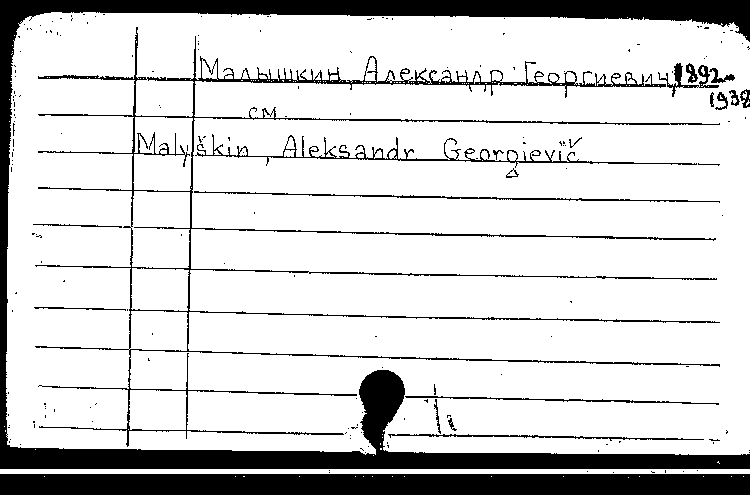 Малышкин, Александр Георгиевич, 1892-
1938
см.
Malyškin, Aleksandr Georgievič